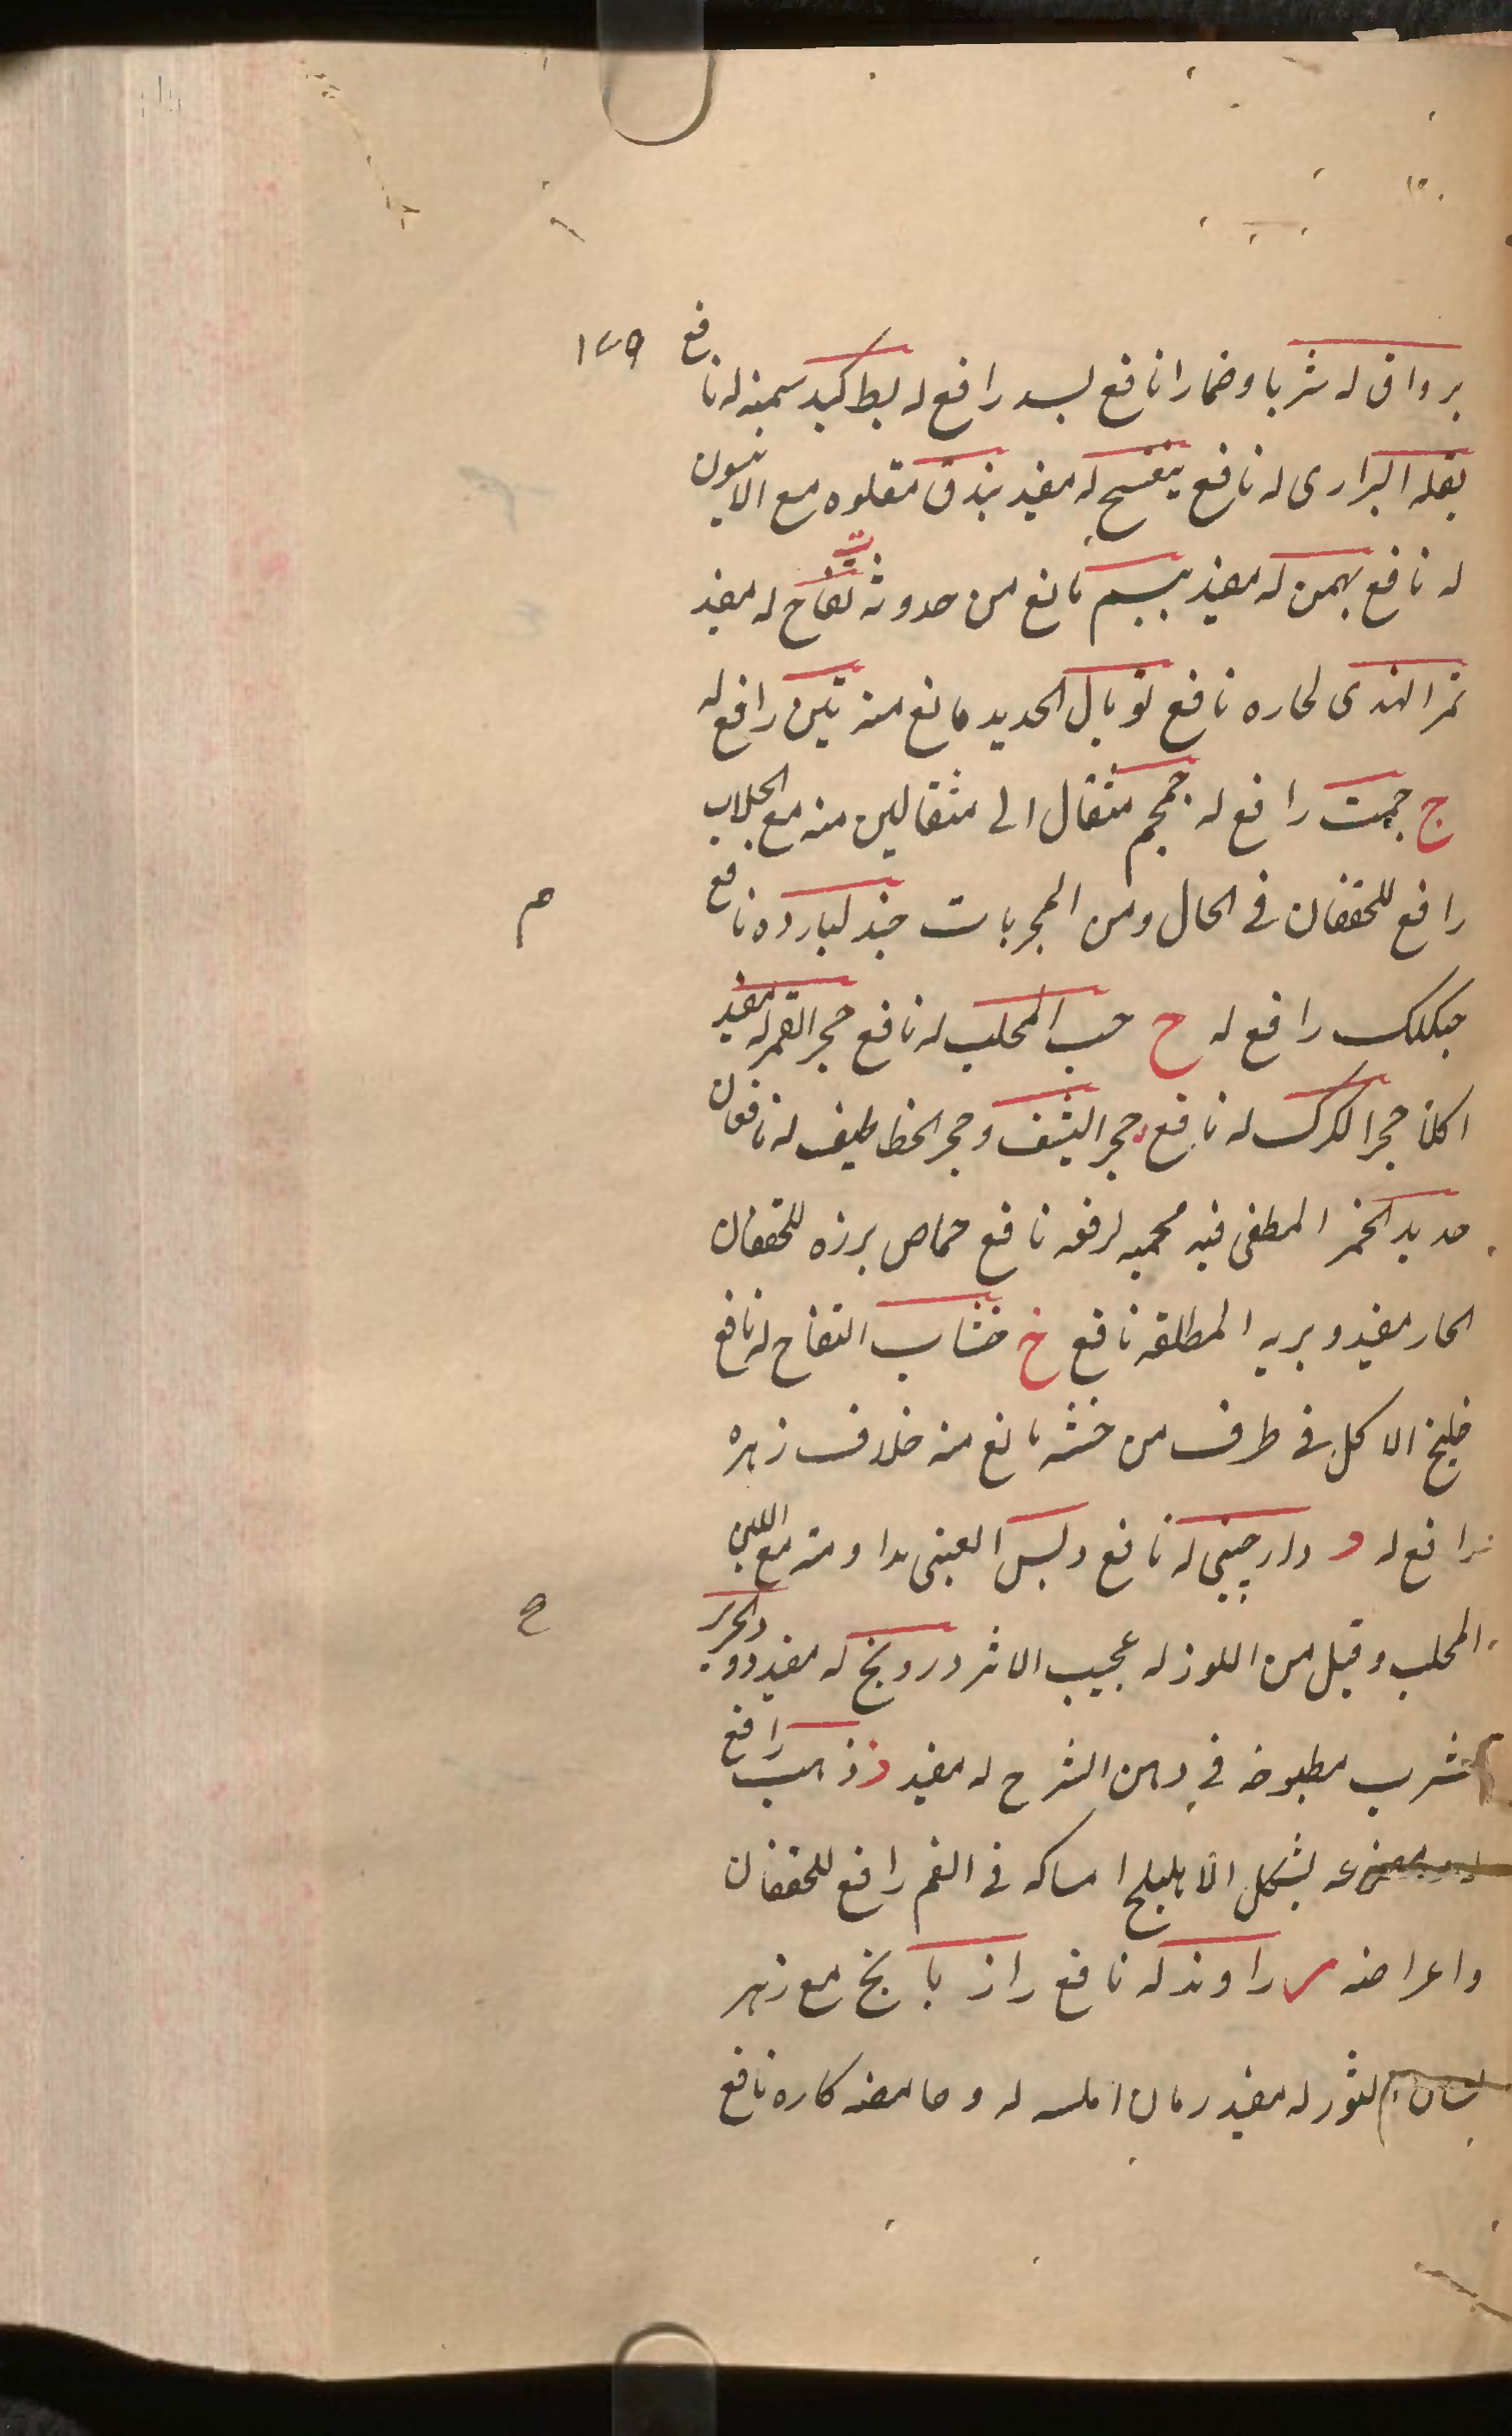 ١٧٩
برواق له شربا وضمادا نافع بسد رافع له بط كبد سمينه له نافع
بقله البرارى له نافع بنفسج له مفيد بندق مقلوه مع الانيسون
له نافع بهمن له مفيد مانع من حدوثه ت تفاح له مفيد
تمر الهندى لحاره نافع توبال الحديد مانع منه تين رافع له
ج جمت رافع له جمجم مثقال الى مثقالين منه مع الجلاب
رافع للخفقان فى الحال ومن المجربات جند لبارده نافع
م
رافع له ح حب المحلب له نافع حجر القمر له مفيد
اكلا حجر الكرك له نافع حجر اليشف وحجر الخطاطيف له نافعان
حديد الخمر المطفى فيه محميه لرفعه نافع حماض بزره للخفقان
الحار مفيد وبريه المطلقه نافع خ خشاب التفاح له نافع
خلنج الاكل فى ظرف من خشبه مانع منه خلاف زهره
رافع له د دارچينى له نافع دبس العنبى مداومته مع اللبن
المحلب وقيل من اللوز له عجيب الاثر درونج له مفيد دود الحرير
ح
شرب مطبوخه فى دهن الشرح له مفيد ذ ذهب رافع
بشكل الاهليلج امساكه فى الفم رافع للخفقان
واعراضه ر راوند له نافع رازيانج مع زهر
لسان الثور له مفيد رمان املسه له وحامضه لحاره نافع